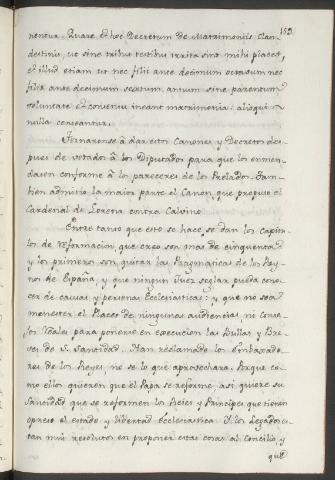 159
nentur. Quare et hoc Decretum de Matrimoniis clan-
destinis, ut sine tribus testibus irrita sint mihi placet,
et illud etiam ut nec filii ante decimum octavum nec
filiæ ante decimum sextum, annum sine parentum
voluntate et consensu ineant matrimonia: alioqui
nulla censeantur.
Tornaronse â dar estos Canones, y Decretos des-
pues de votados â los Diputados para que los enmen-
dasen conforme â los pareceres de los Prelados. Tam-
bien admitio la maior parte el Canon, que propuso el
Cardenal de Lorena contra Calvino.
Entre tanto que esto se hace, se dan los capitu-
los de reformacion, que creo son mas de cinquenta
y los primeros son quitar las Pragmaticas de los Rey-
nos de España, y que ningun Juez seglar pueda cono-
cer de causas y personas Ecclesiasticas: y que no sea
menester el Placet de ningunas audiencias, ni Conse-
jos Reales para ponerse en execucion las Bullas, y Bre-
ves de S. Santidad. Han reclamado los Embaxado-
res de los Reyes, no se lo que aprovechara. Porque co-
mo ellos quieren que el Papa se reforme, asi quiere su
Santidad que se reformen los Reies y Principes que tienen
opreso el estado y libertad Ecclesiastica. Y los Legados es-
tan mui resolutos en proponer estas cosas al Concilio, y
que